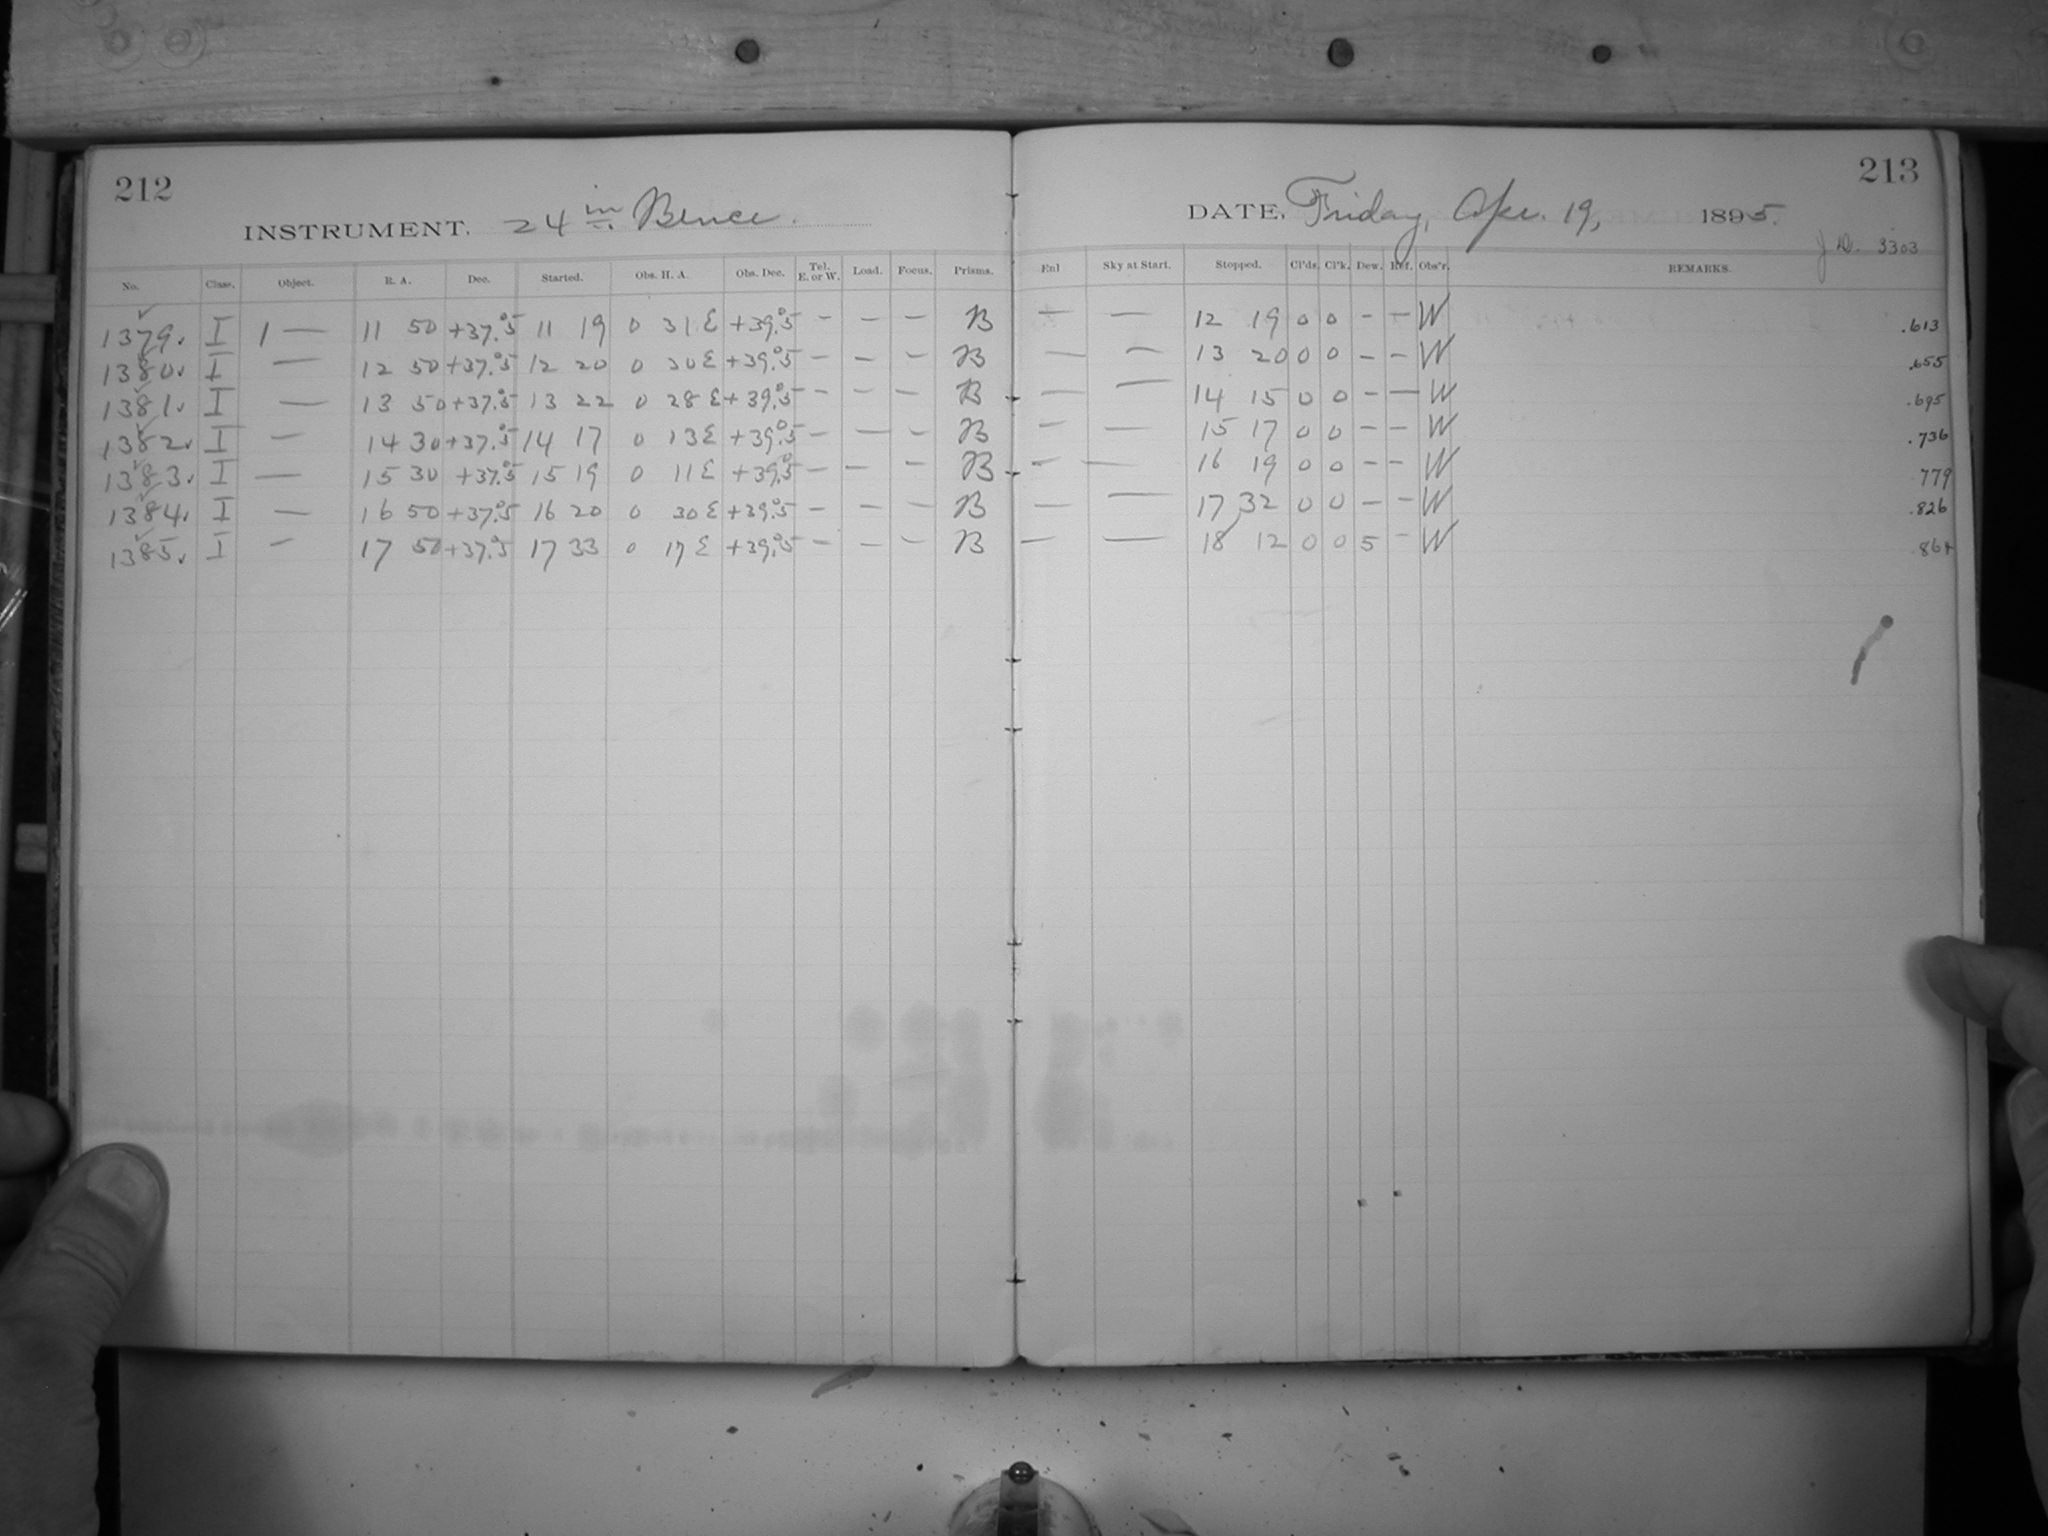 212
INSTRUMENT. 24 in Bruce.
No. Class. Object. R. A. Dec. Started. Obs. H. A. Obs. Dec. Tel. E. or W. Load. Focus. Prisms.
1379. I 1 — 11 50 +37.°5 11 19 0 31 E +39.°5 — — — B
1380. I — 12 50 +37.°5 12 20 0 30 E +39.°5 — — — B
1381. I — 13 50 +37.°5 13 22 0 28 E +39.°5 — — — B
1382. I — 14 30 +37.°5 14 17 0 13 E +39.°5 — — — B
1383. I — 15 30 +37.°5 15 19 0 11 E +39.°5 — — — B
1384. I — 16 50 +37.°5 16 20 0 30 E +39.°5 — — — B
1385. I — 17 50 +37.°5 17 33 0 17 E +39.°5 — — — B
213
DATE, Friday, Apr. 19, 1895.
J.D. 3303
Enl Sky at Start. Stopped. Cl'ds. Cl'k. Dew. Ref. Obs'r. REMARKS.
— — 12 19 0 0 — — W .613
— — 13 20 0 0 — — W .655
— — 14 15 0 0 — — W .695
— — 15 17 0 0 — — W .736
— — 16 19 0 0 — — W 779
— — 17 32 0 0 — — W .826
— — 18 12 0 0 5 — W